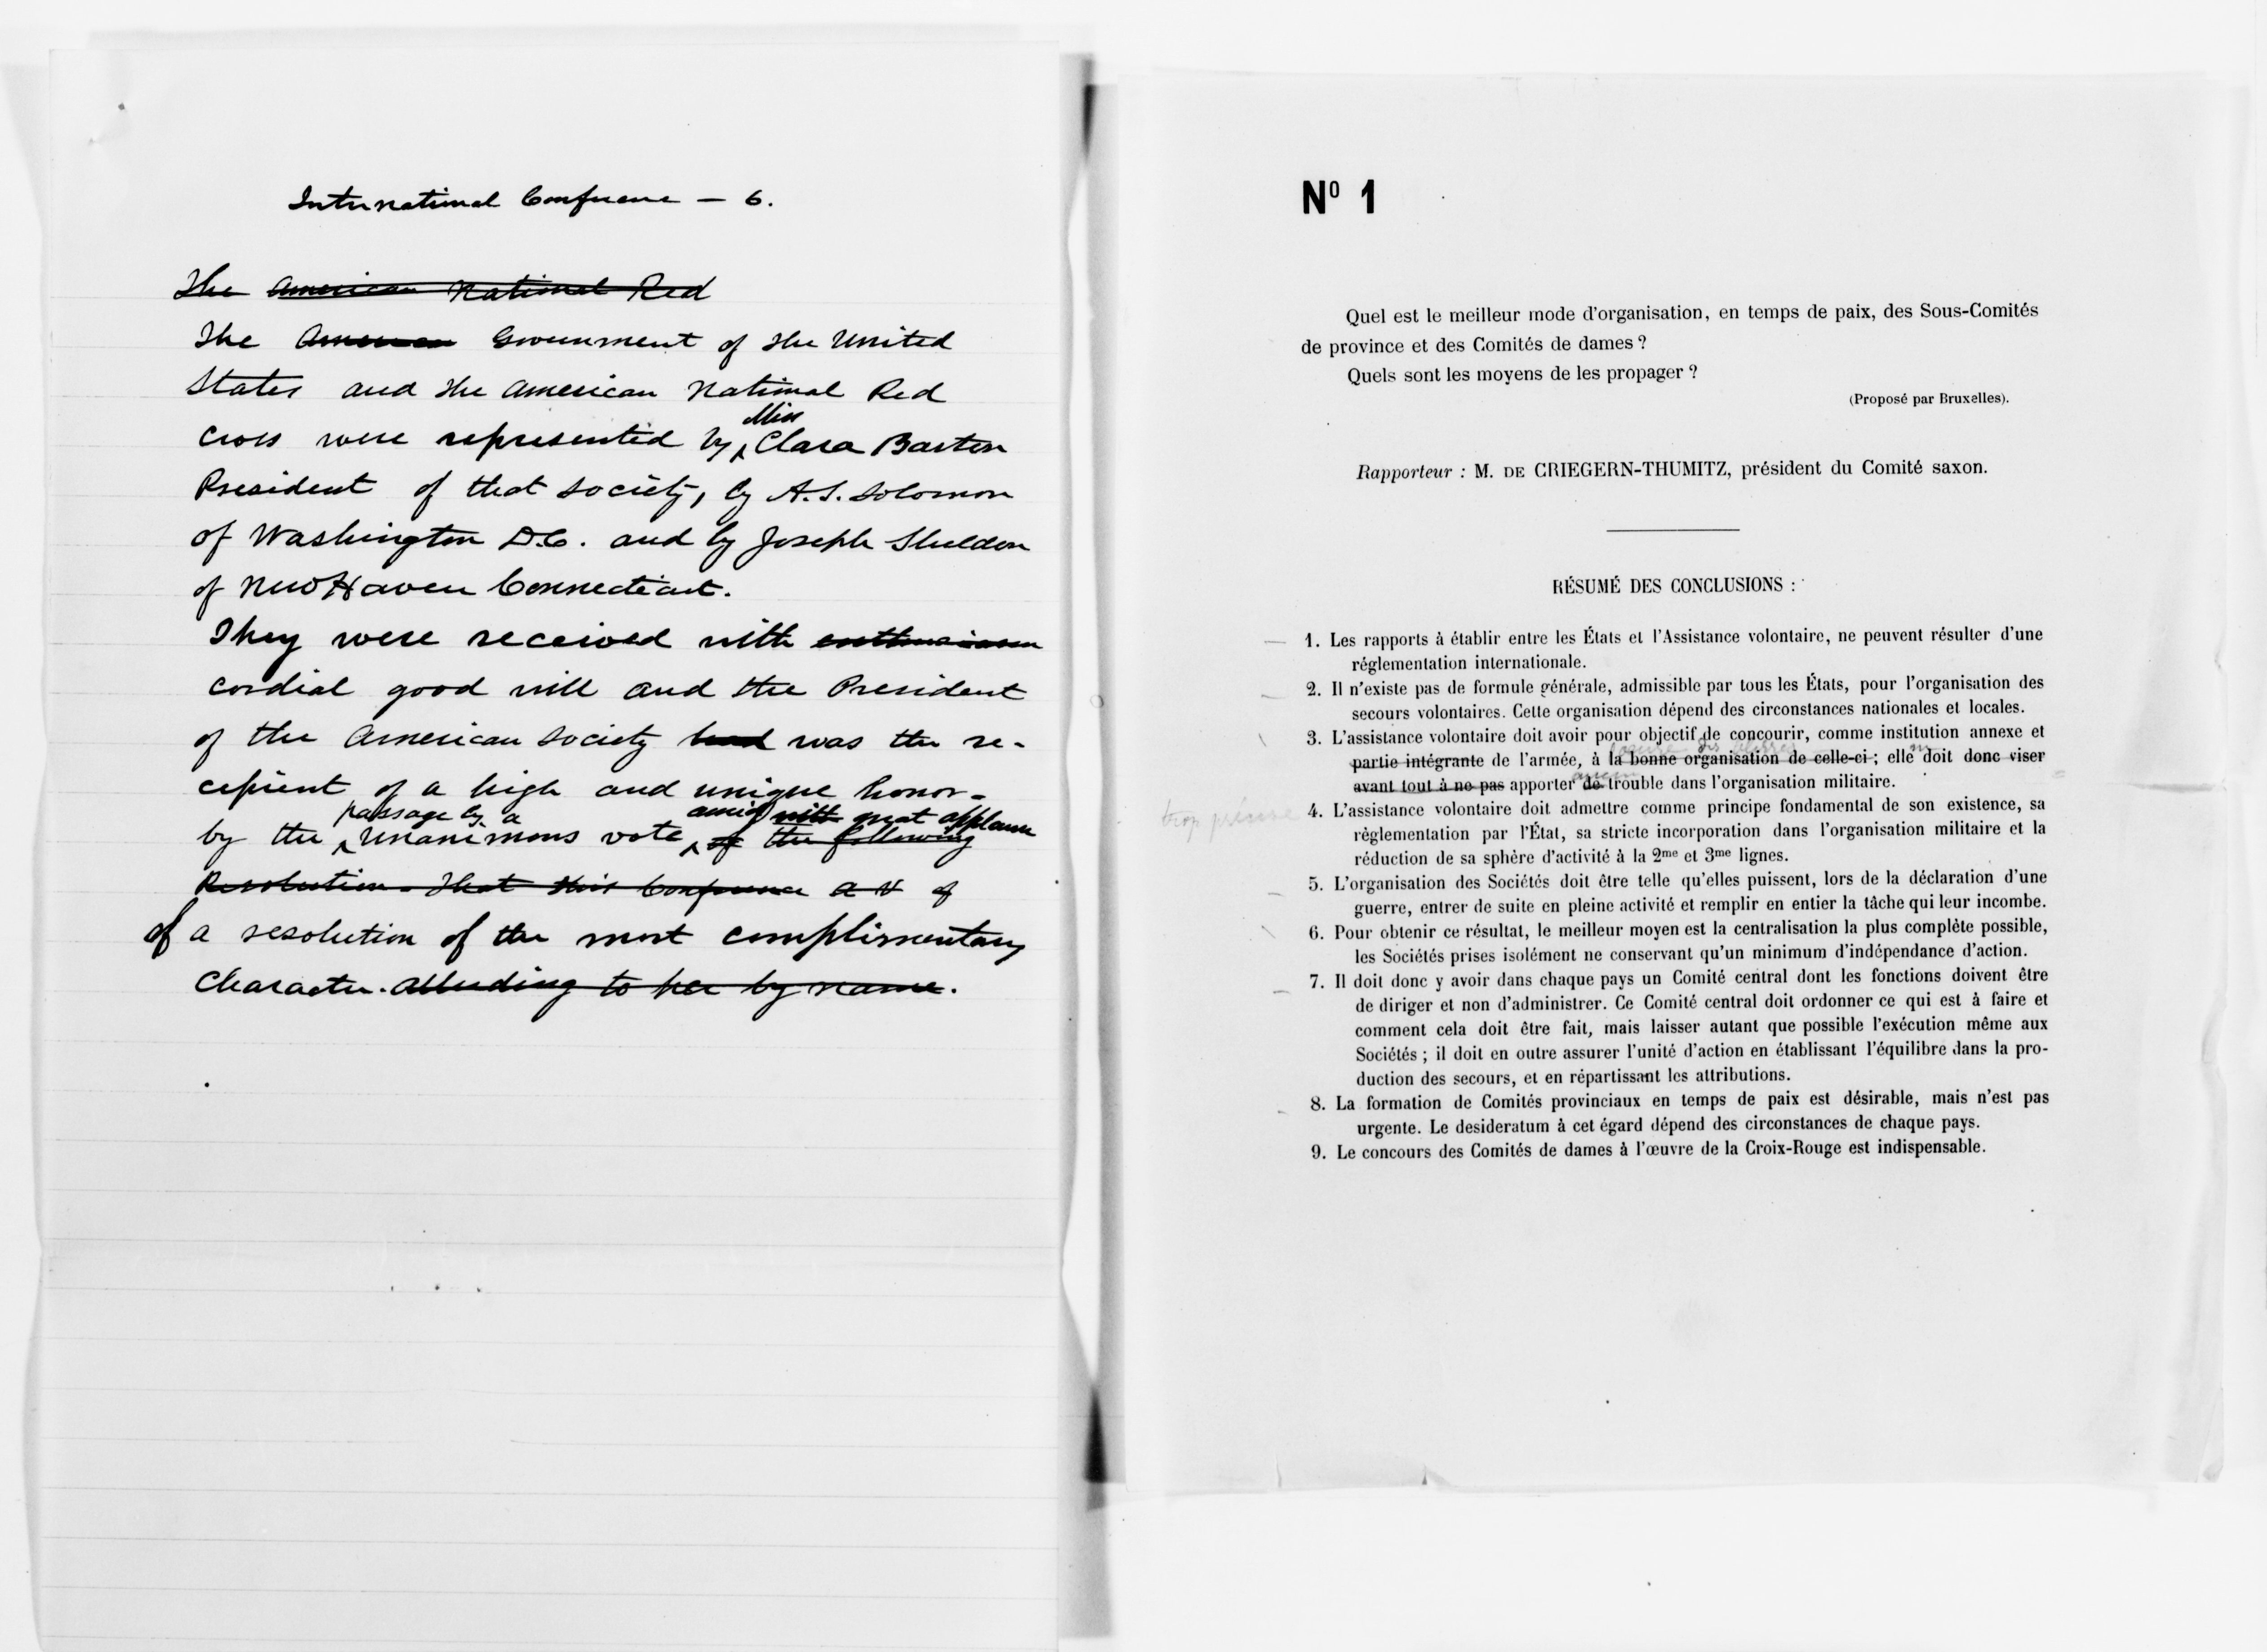 International Conference — 6.
The American National Red
The American Government of the United
States and the American National Red
Miss
Cross were represented by ‸ Clara Barton
President of that Society, by A.S. Solomon
of Washington D.C. and by Joseph Sheldon
of New Haven Connecticut.
They were received with enthusiasm
cordial good will and the President
of the American Society had was the re-
cipient of a high and unique honor-
passage by a amid with great applause
by the ‸ unanimous vote ‸ of the following
Resolution - That this Conference a v of
of a resolution of the most complimentary
Character. alluding to her by name.
Nº 1
Quel est le meilleur mode d'organisation, en temps de paix, des Sous-Comités
de province et des Comités de dames ?
Quels sont les moyens de les propager ?
(Proposé par Bruxelles).
Rapporteur : M. DE CRIEGERN-THUMITZ, président du Comité saxon.
RÉSUMÉ DES CONCLUSIONS :
1. Les rapports à établir entre les États et l'Assistance volontaire, ne peuvent résulter d'une
réglementation internationale.
2. Il n'existe pas de formule générale, admissible par tous les États, pour l'organisation des
secours volontaires. Cette organisation dépend des circonstances nationales et locales.
3. L'assistance volontaire doit avoir pour objectif de concourir, comme institution annexe et
des blessés
partie intégrante de l'armée, à la bonne organisation de celle-ci ; elle doit donc viser
aucun
avant tout à ne pas apporter de trouble dans l'organisation militaire.
trop
4. L'assistance volontaire doit admettre comme principe fondamental de son existence, sa
règlementation par l'État, sa stricte incorporation dans l'organisation militaire et la
réduction de sa sphère d'activité à la 2me et 3me lignes.
5. L'organisation des Sociétés doit être telle qu'elles puissent, lors de la déclaration d'une
guerre, entrer de suite en pleine activité et remplir en entier la tâche qui leur incombe.
6. Pour obtenir ce résultat, le meilleur moyen est la centralisation la plus complète possible,
les Sociétés prises isolément ne conservant qu'un minimum d'indépendance d'action.
7. Il doit donc y avoir dans chaque pays un Comité central dont les fonctions doivent être
de diriger et non d'administrer. Ce Comité central doit ordonner ce qui est à faire et
comment cela doit être fait, mais laisser autant que possible l'exécution même aux
Sociétés ; il doit en outre assurer l'unité d'action en établissant l'équilibre dans la pro-
duction des secours, et en répartissant les attributions.
8. La formation de Comités provinciaux en temps de paix est désirable, mais n'est pas
urgente. Le desideratum à cet égard dépend des circonstances de chaque pays.
9. Le concours des Comités de dames à l'œuvre de la Croix-Rouge est indispensable.